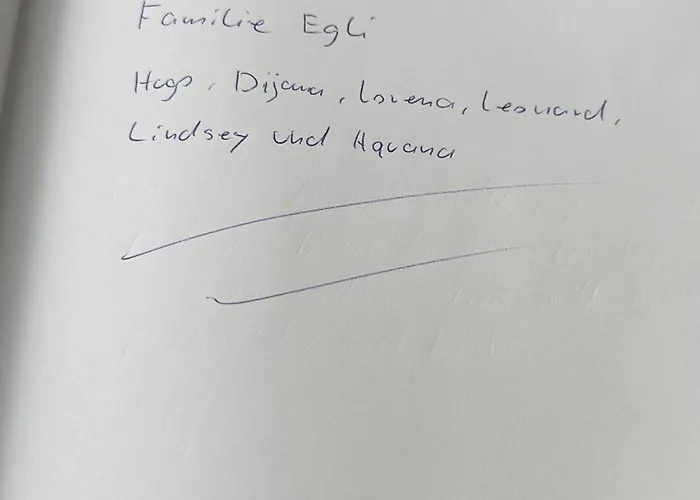 Familie Egli
Hugo, Dijana, Lorena, Leonard,
Lindsey und Aquana